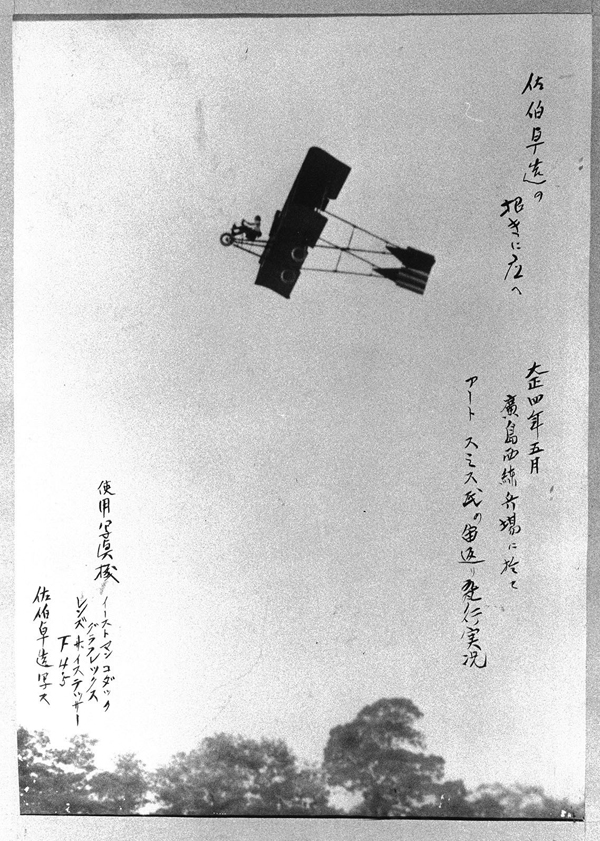 佐伯卓造の
招きに応へ
大正四年五月
廣島西練兵場に於て
アート スミス氏の宙返り飛行実況
使用写真機
イーストマンコダック
グラフレックス
レンズ ホイステッサー
F 4.5
佐伯卓造写ス